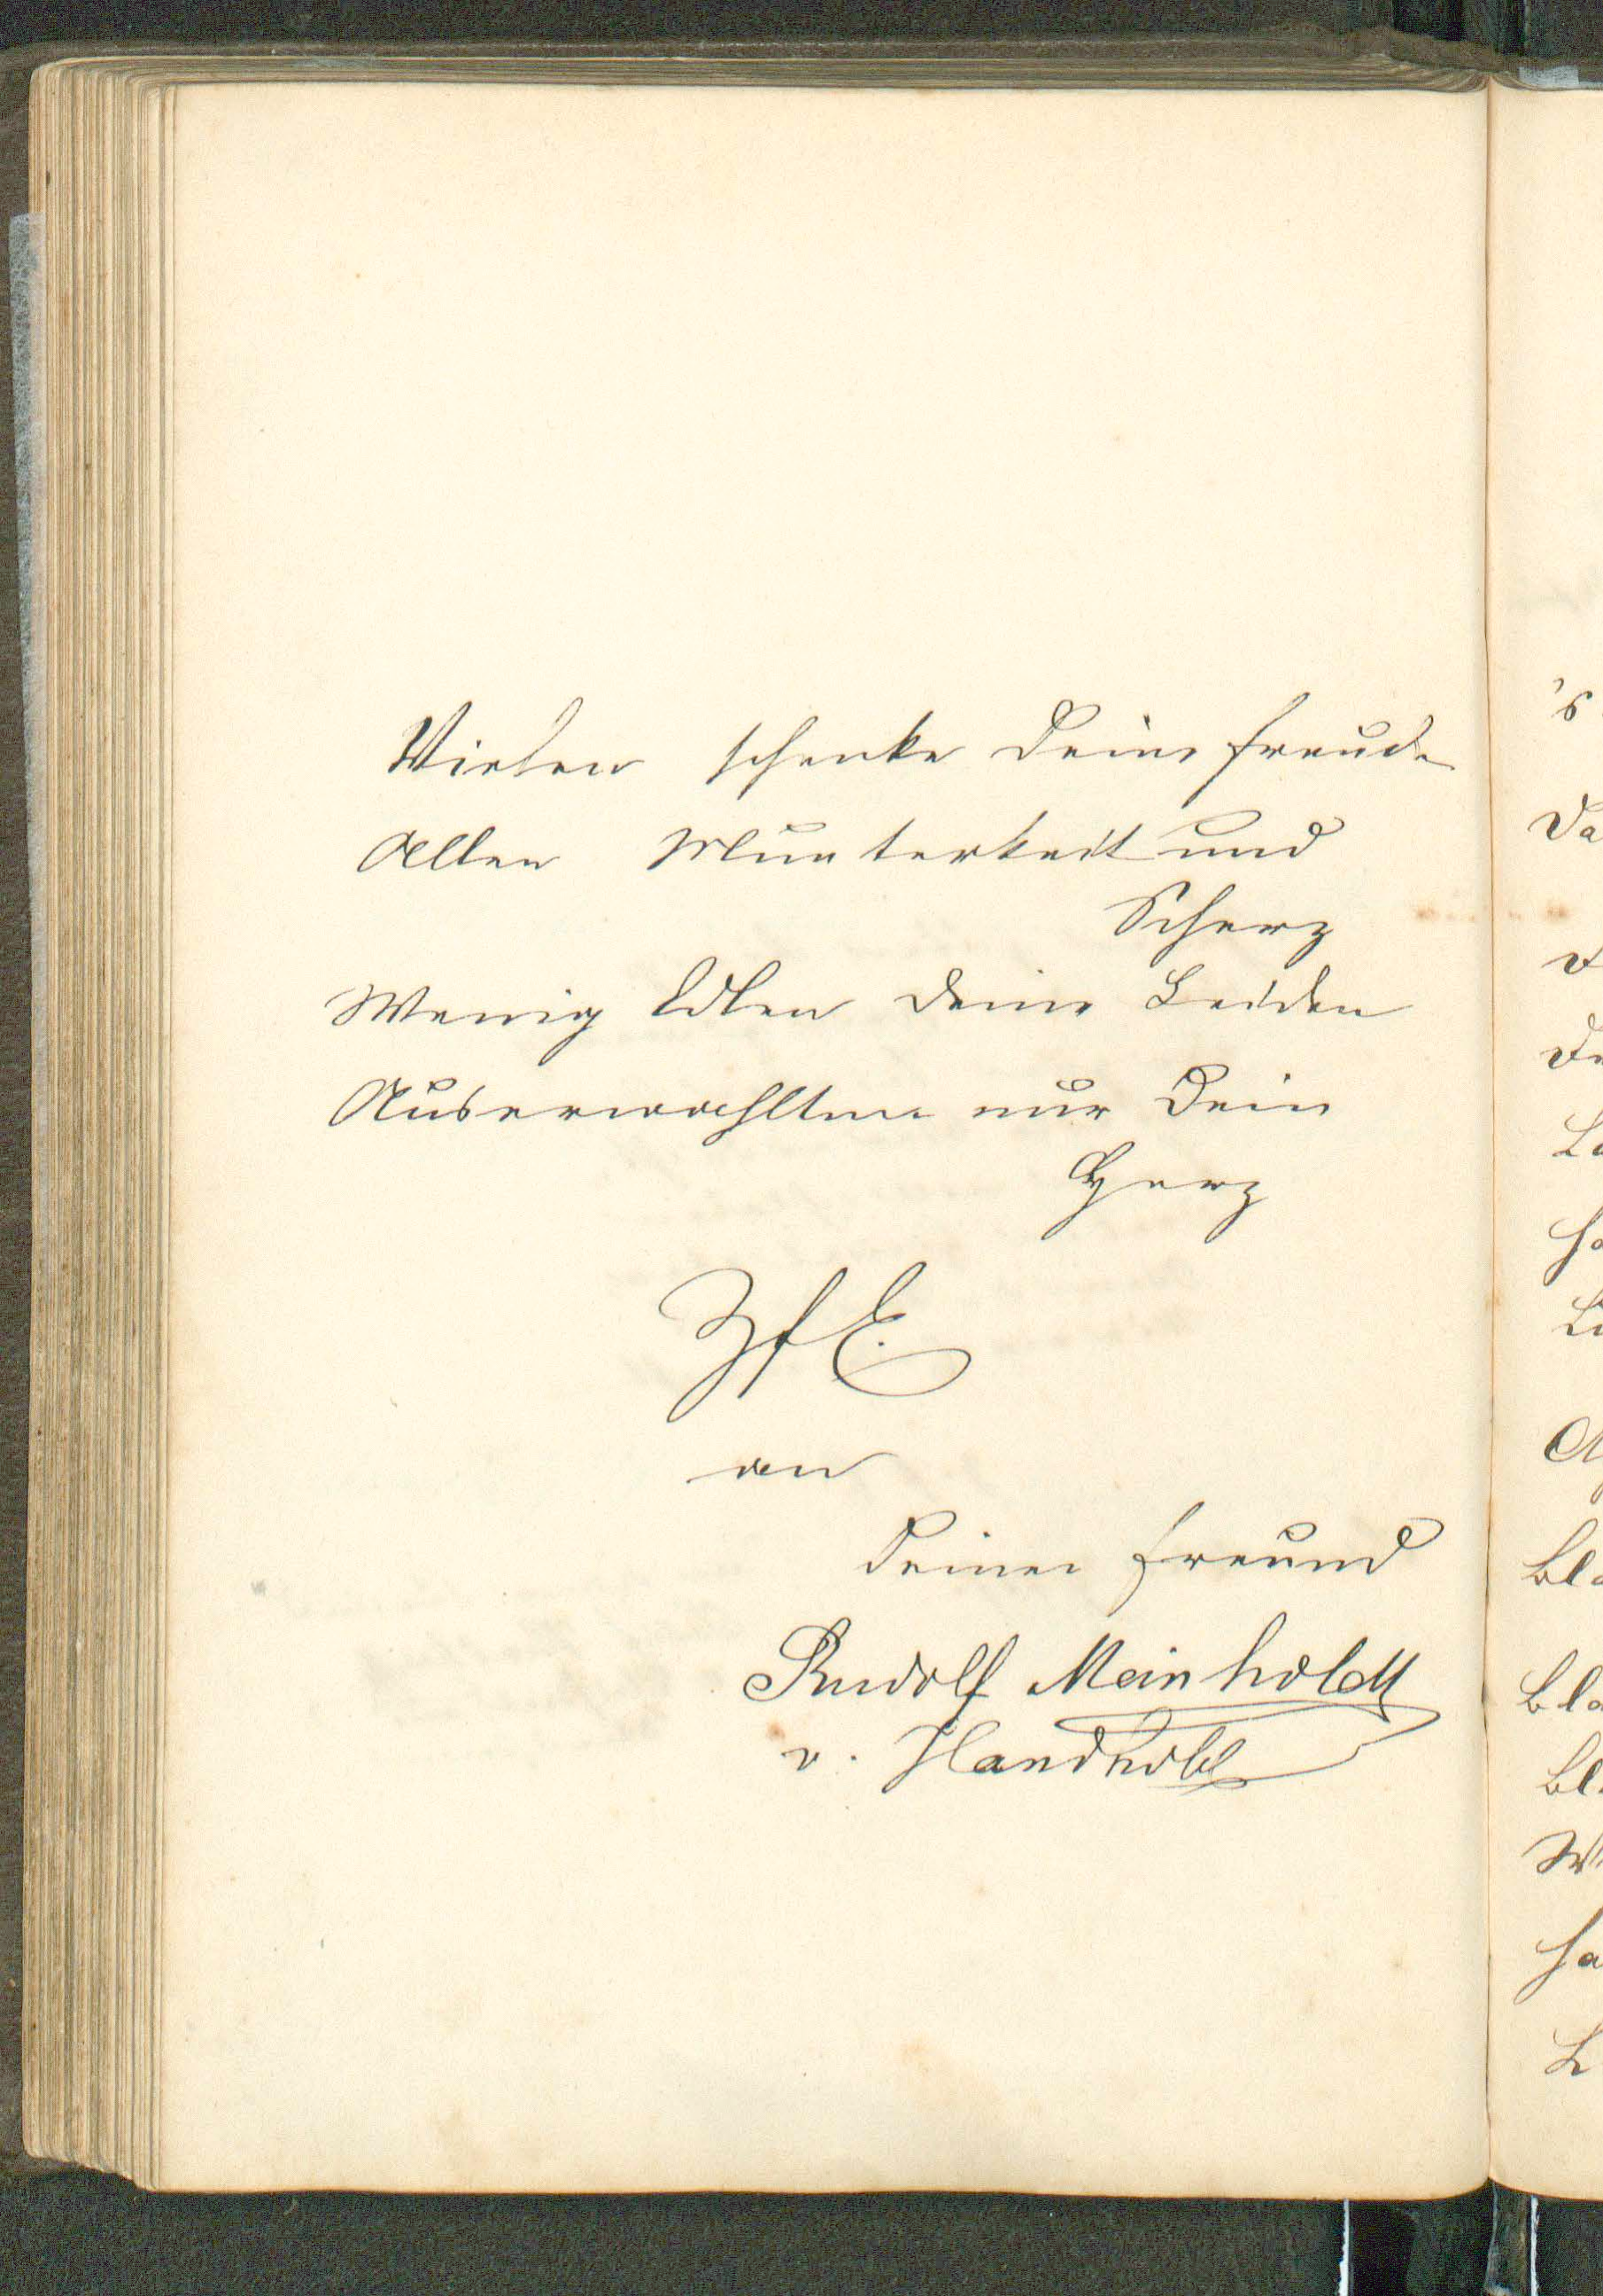 Vielen schenke Deine Freude
Allen Munterkeit und
Scherz
Wenig Edlen Deine Leiden
Auserwahlten nur Dein
Herz
ZfE.
an
Deinen Freund
Rudolf Meinholdt
v.